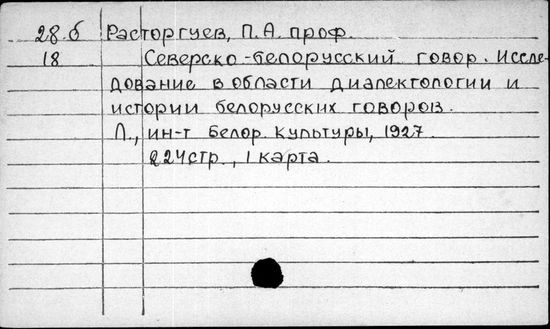 28.б Расторгуев, П.А. проф.
18 Северско-белорусский говор. Иссле-
дование в области диалектологии и
истории белорусских говоров.
Л., ин-т белор. культуры, 1927.
224стр., 1 карта.